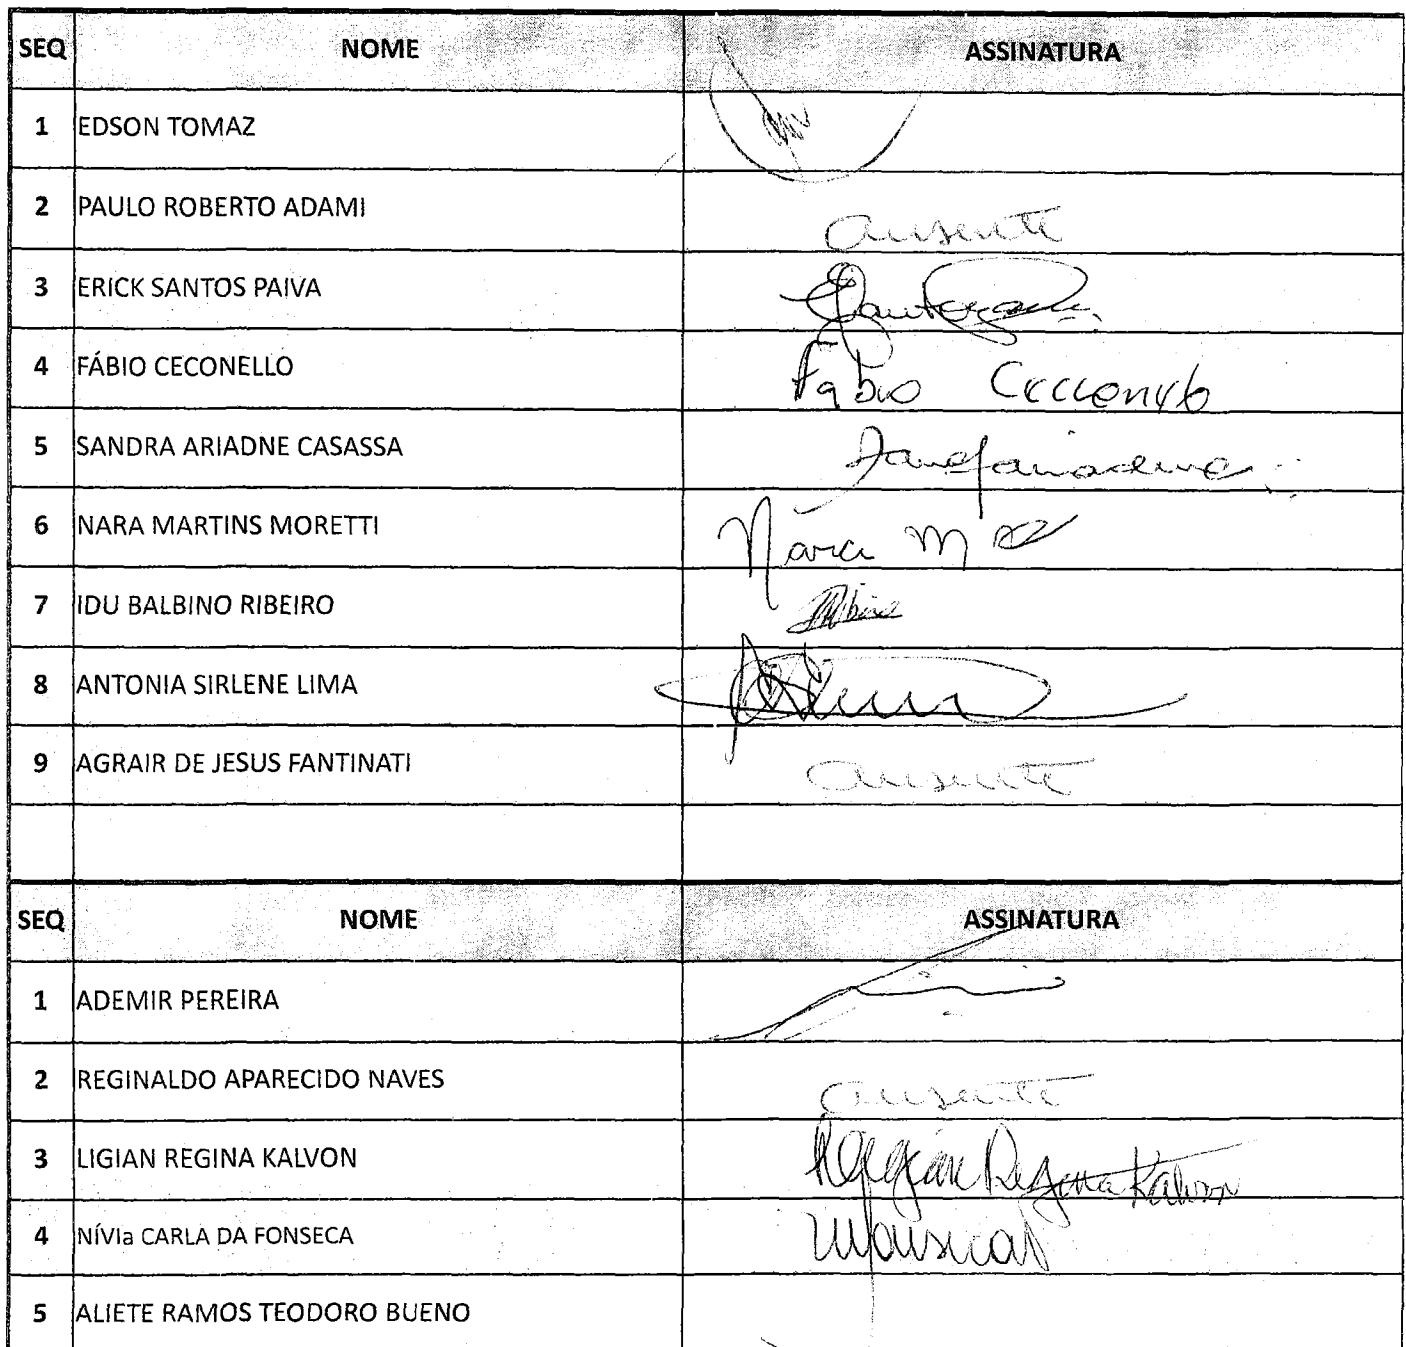 SEQ NOME ASSINATURA
1 EDSON TOMAZ
2 PAULO ROBERTO ADAMI ausente
3 ERICK SANTOS PAIVA
4 FÁBIO CECONELLO Fábio Ceconello
5 SANDRA ARIADNE CASASSA
6 NARA MARTINS MORETTI Nara M
7 IDU BALBINO RIBEIRO
8 ANTONIA SIRLENE LIMA
9 AGRAIR DE JESUS FANTINATI ausente
SEQ NOME ASSINATURA
1 ADEMIR PEREIRA
2 REGINALDO APARECIDO NAVES ausente
3 LIGIAN REGINA KALVON Ligian Regina Kalvon
4 NÍVIa CARLA DA FONSECA
5 ALIETE RAMOS TEODORO BUENO